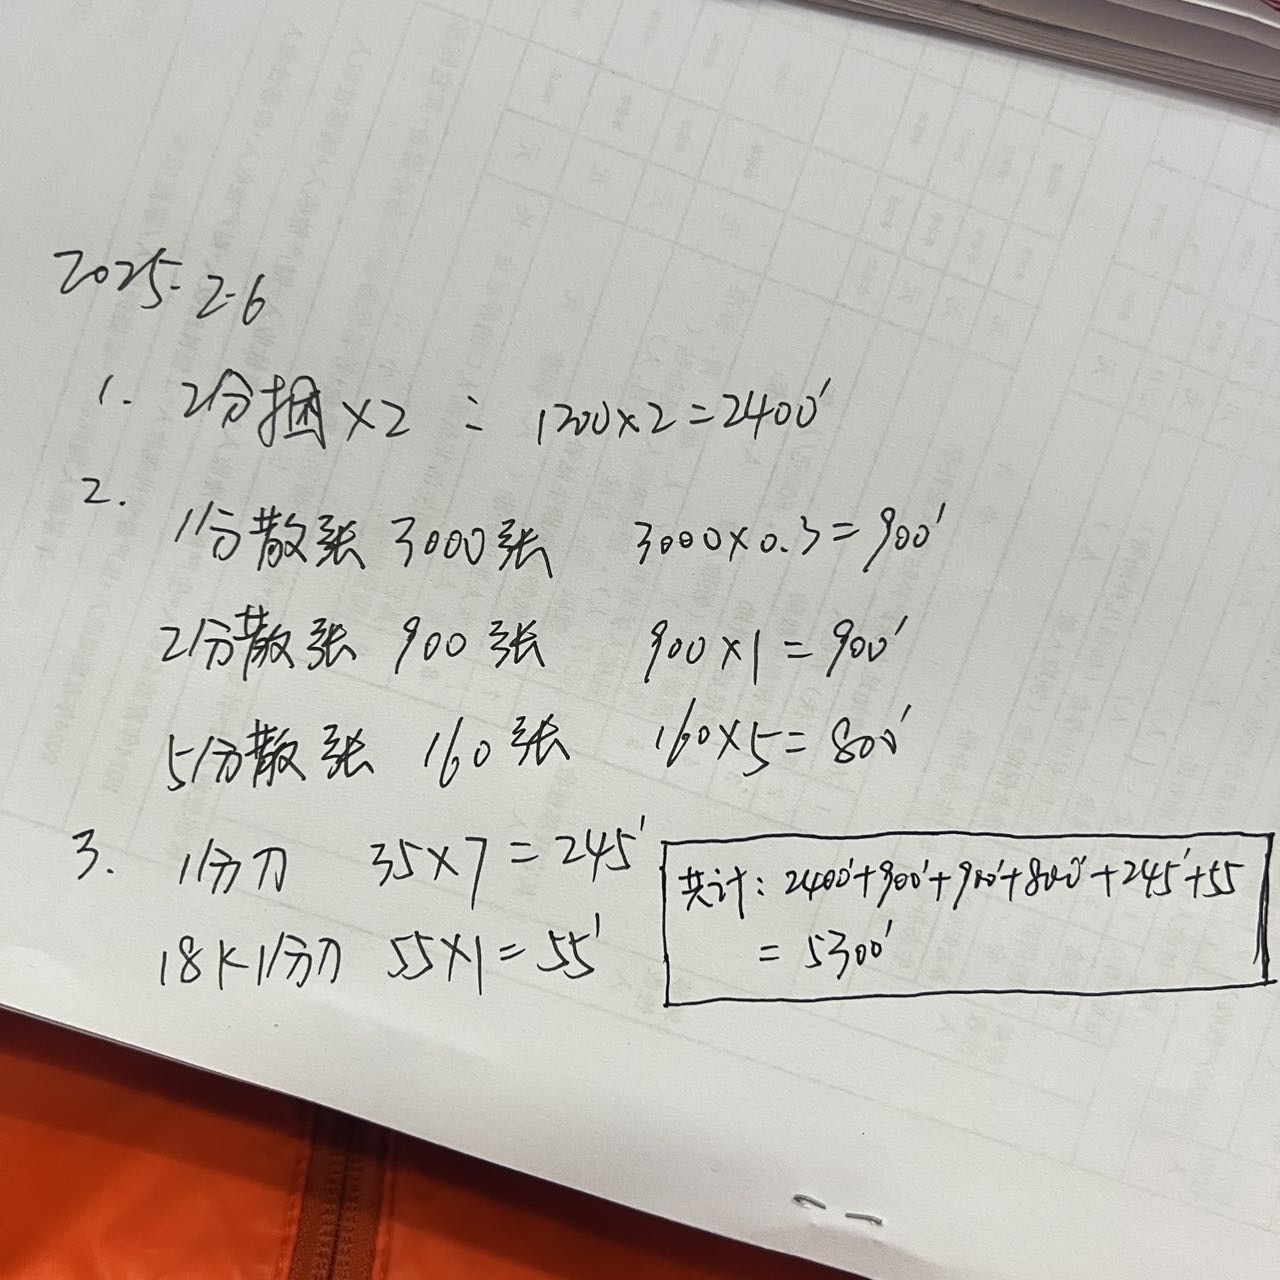 2025-2-6
1. 2分捆×2 = 1200×2=2400'
2.
1分散张 3000张 3000×0.3=900'
2分散张 900张 900×1=900'
5分散张 160张 160×5=800'
3. 1分刀 35×7=245'
18K1分刀 55×1=55'
共计: 2400'+900'+900'+800'+245'+55
= 5300'